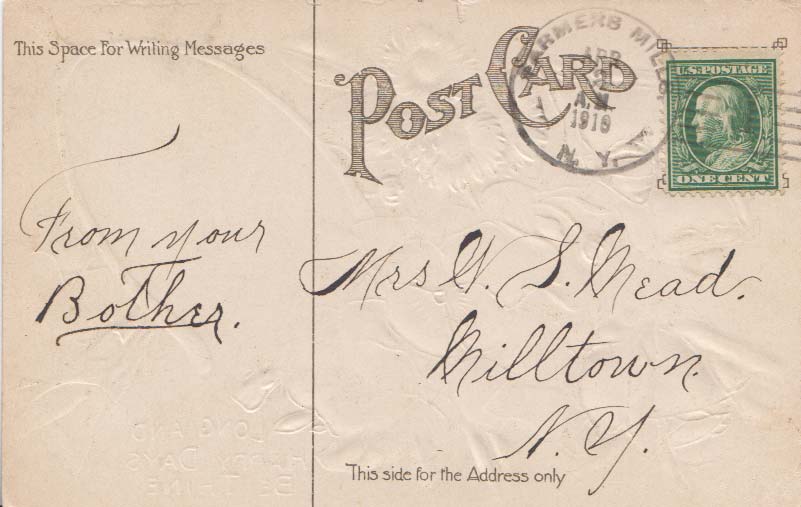 This Space For Writing Messages
POST CARD
FARMERS MILLS
APR
A.M.
1910
N. Y.
U.S. POSTAGE
ONE CENT
From your
Bother.
Mrs W. S. Mead.
Milltown.
N. Y.
This side for the Address only
LONG AND
HAPPY DAYS
BE THINE